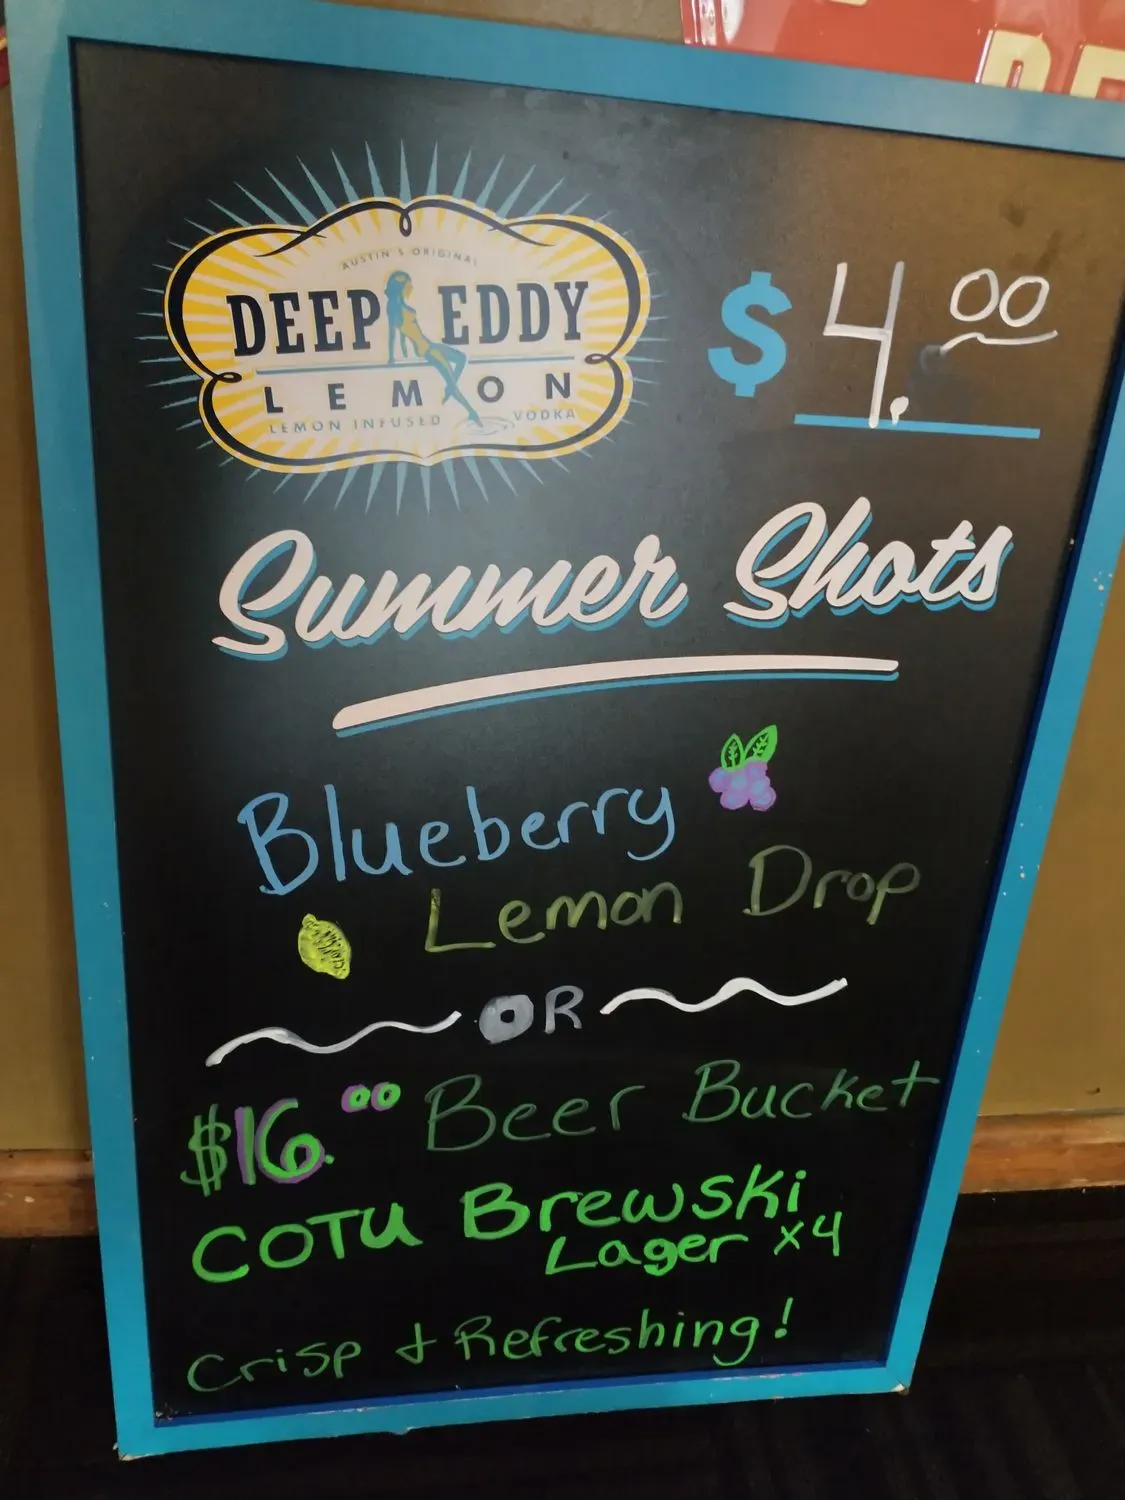 AUSTIN'S ORIGINAL
DEEP EDDY
LEMON
LEMON INFUSED VODKA
$4.00
Summer Shots
Blueberry
Lemon Drop
OR
$16.00 Beer Bucket
COTU Brewski
Lager x4
Crisp & Refreshing!